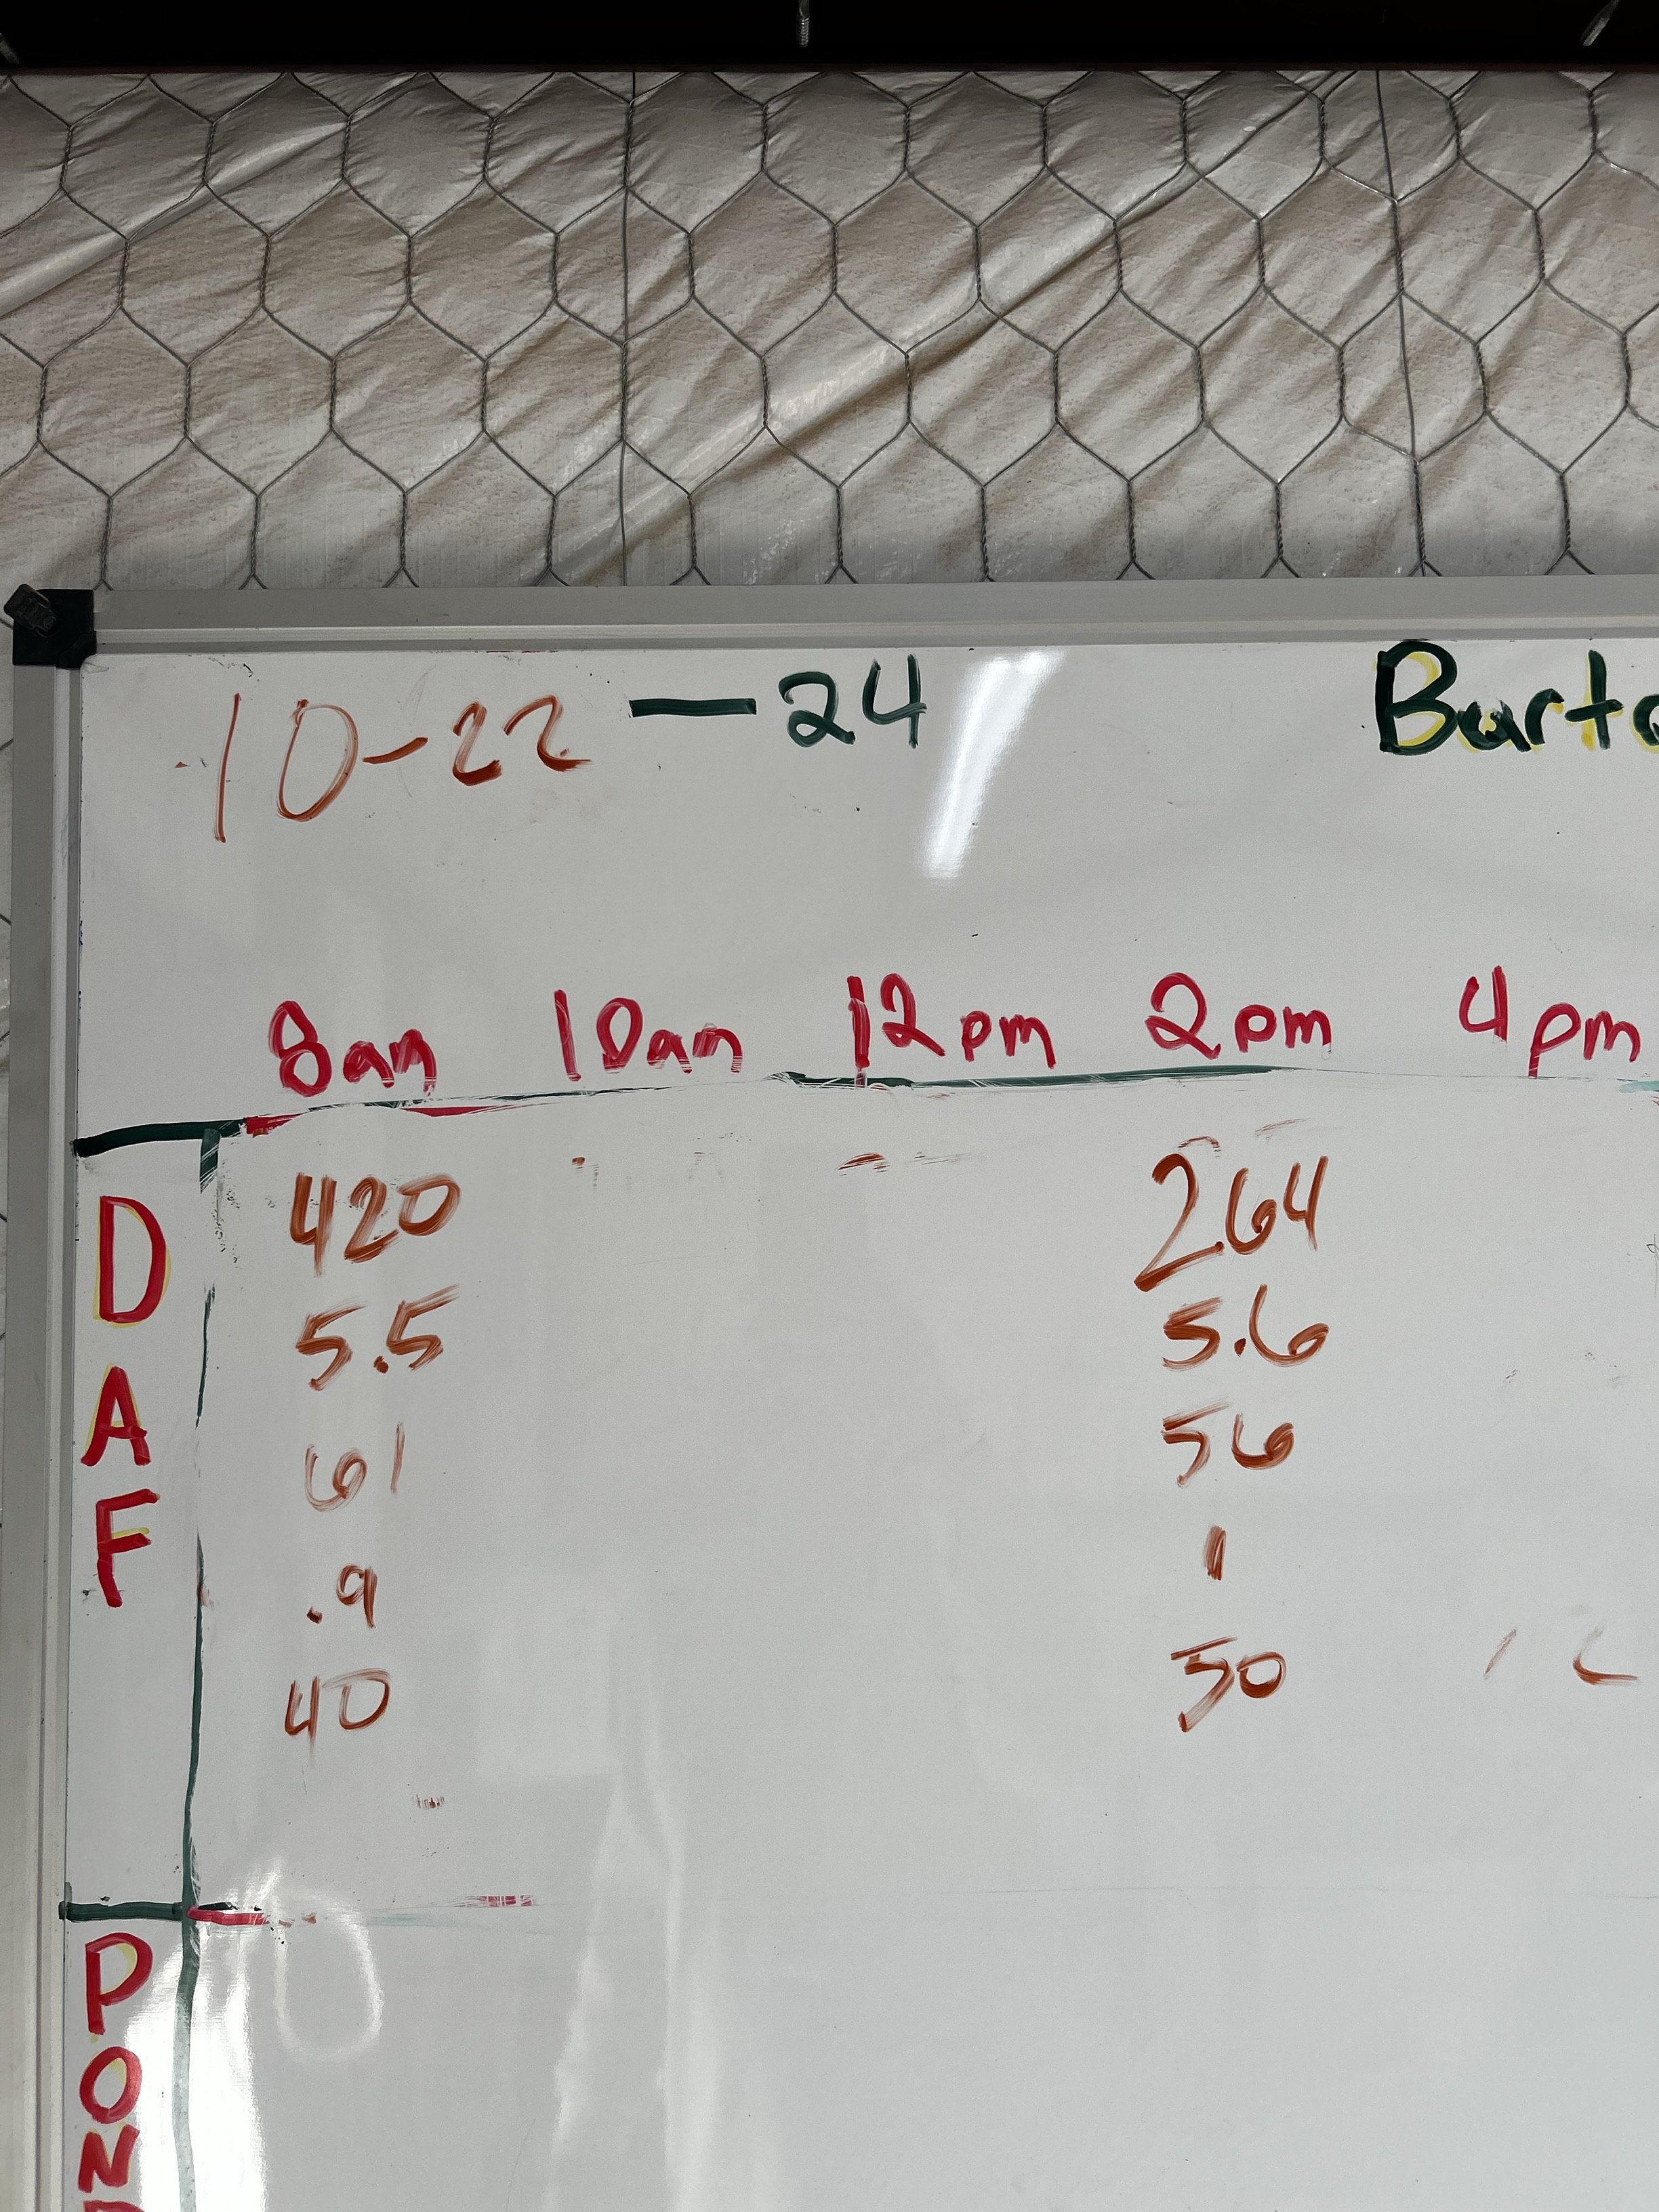 10-22 — 24
8am 10am 12pm 2pm 4pm
DAF
420 264
5.5 5.6
61 56
.9 1
40 50
PON